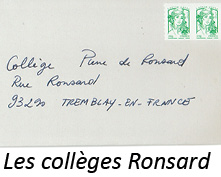 Collège Pierre de Ronsard
Rue Ronsard
93290 TREMBLAY-EN-FRANCE
Les collèges Ronsard